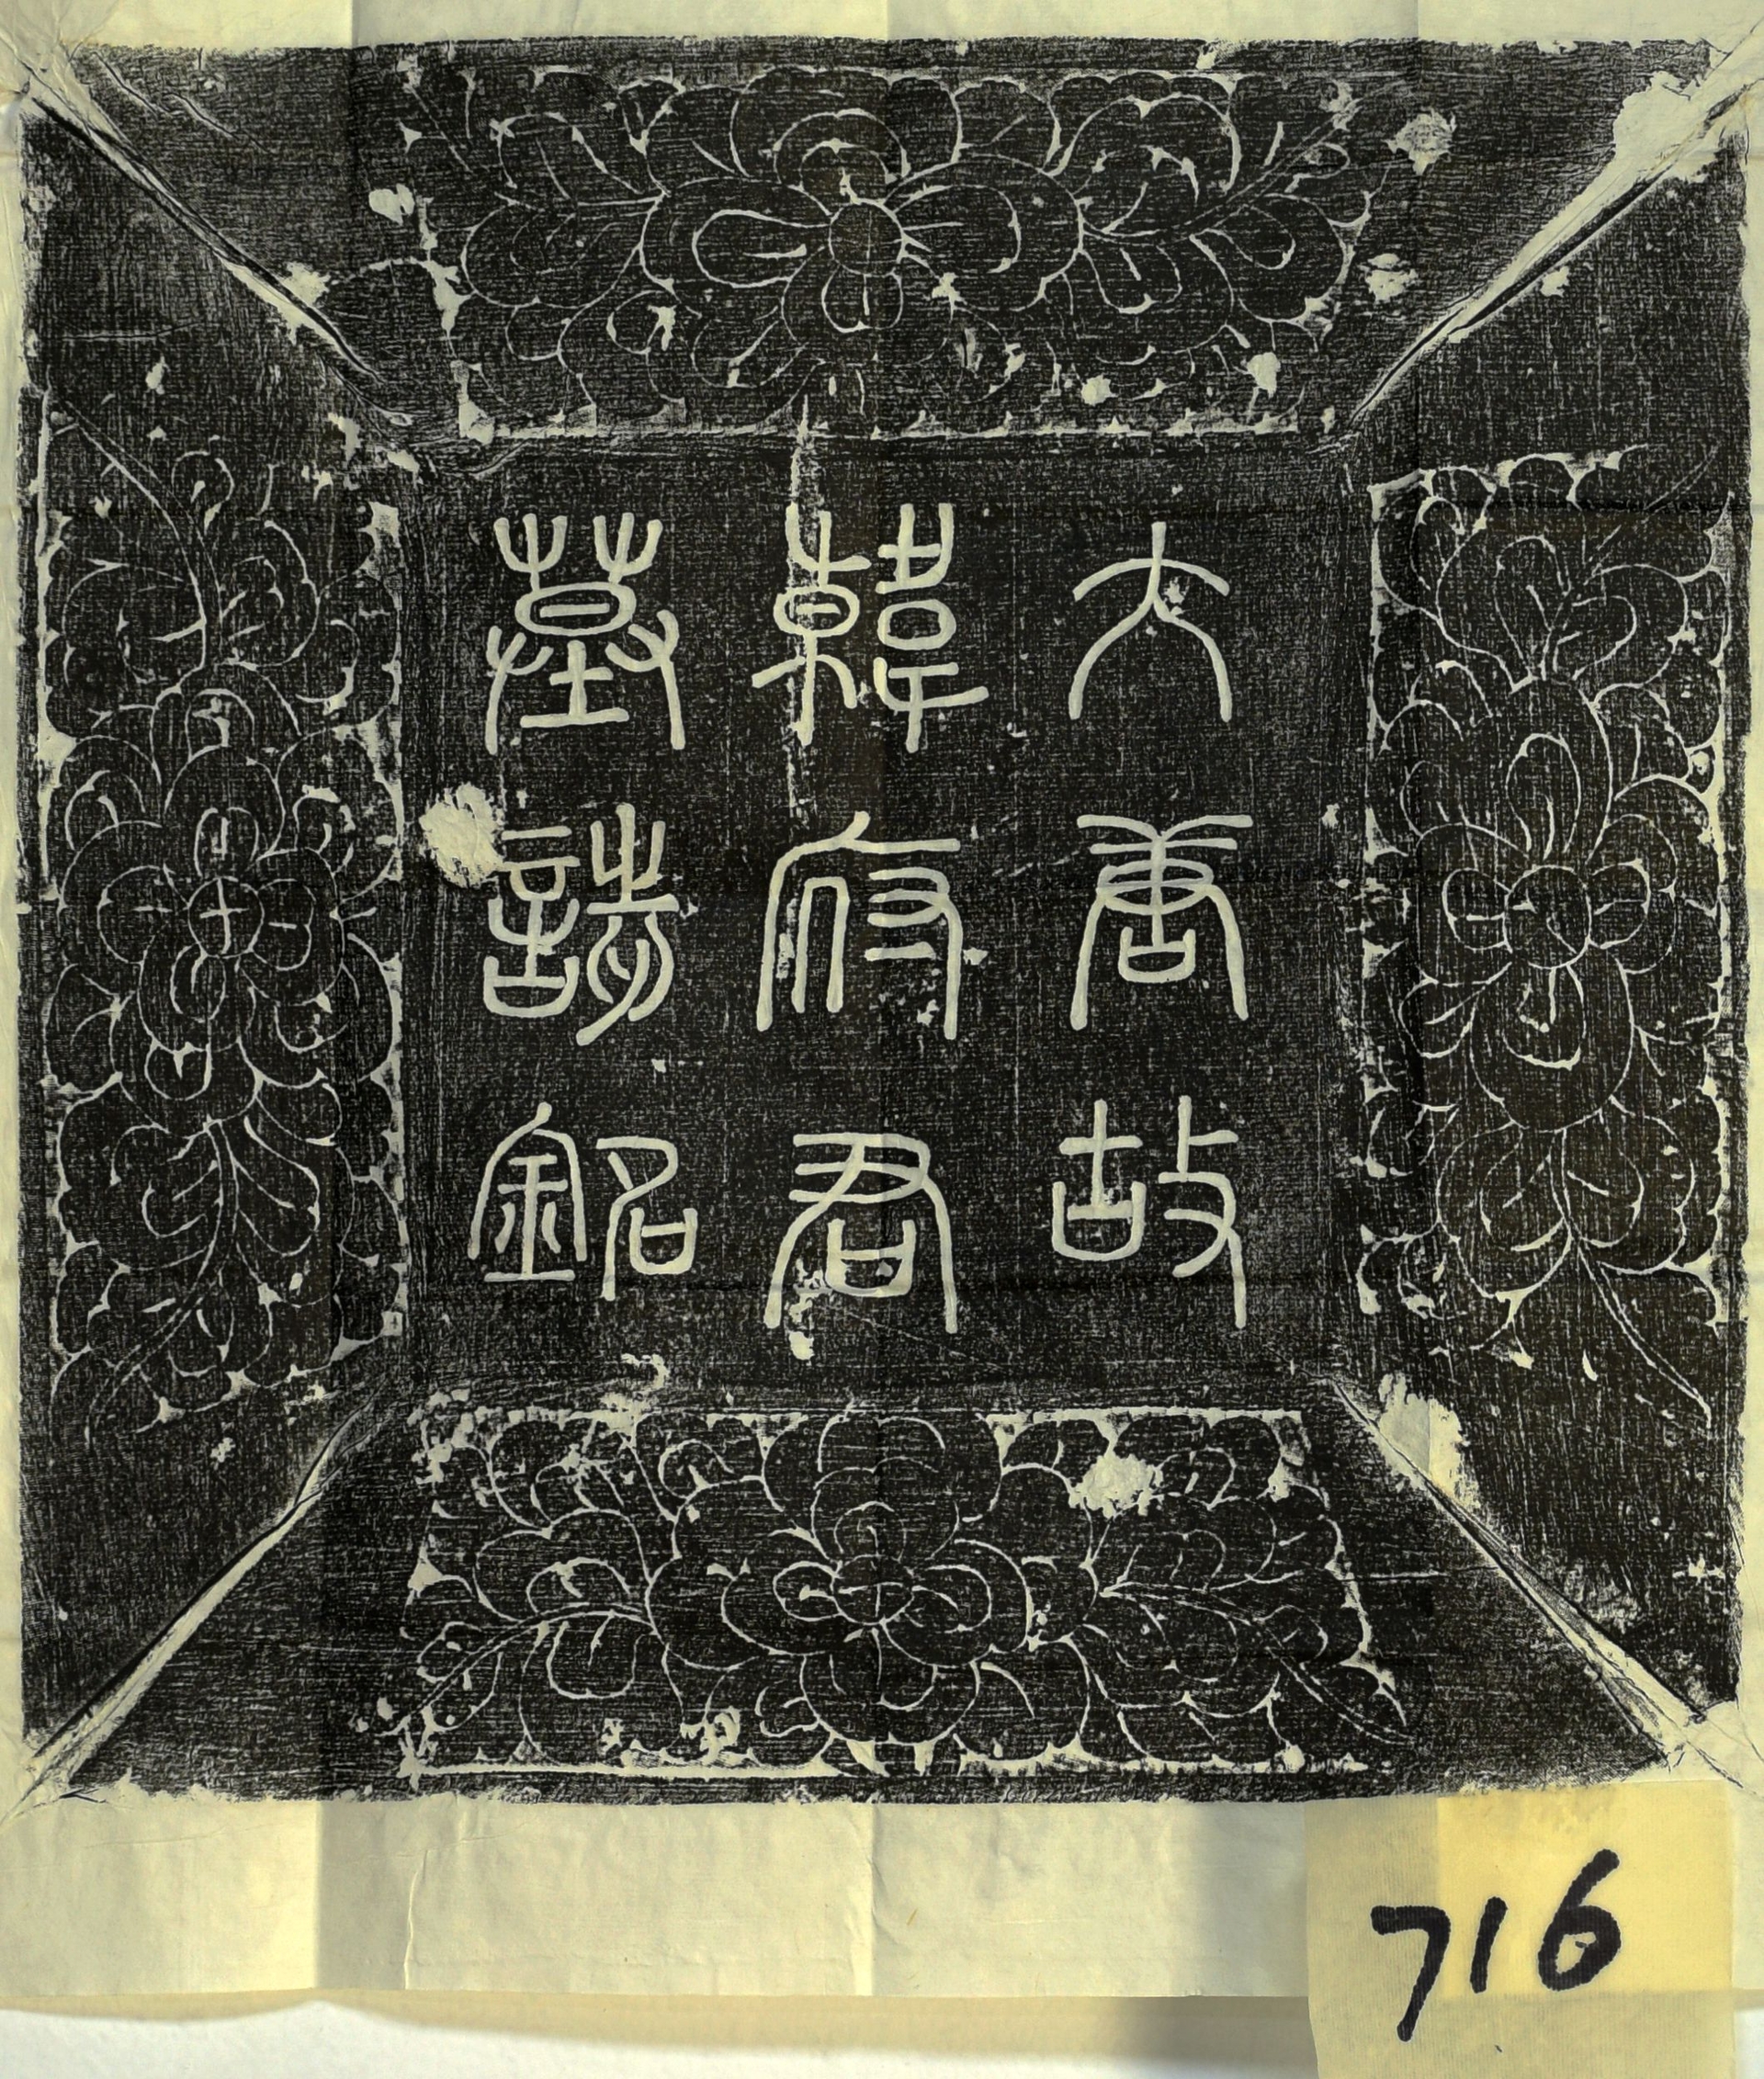 大唐故
韓府君
墓誌銘
716